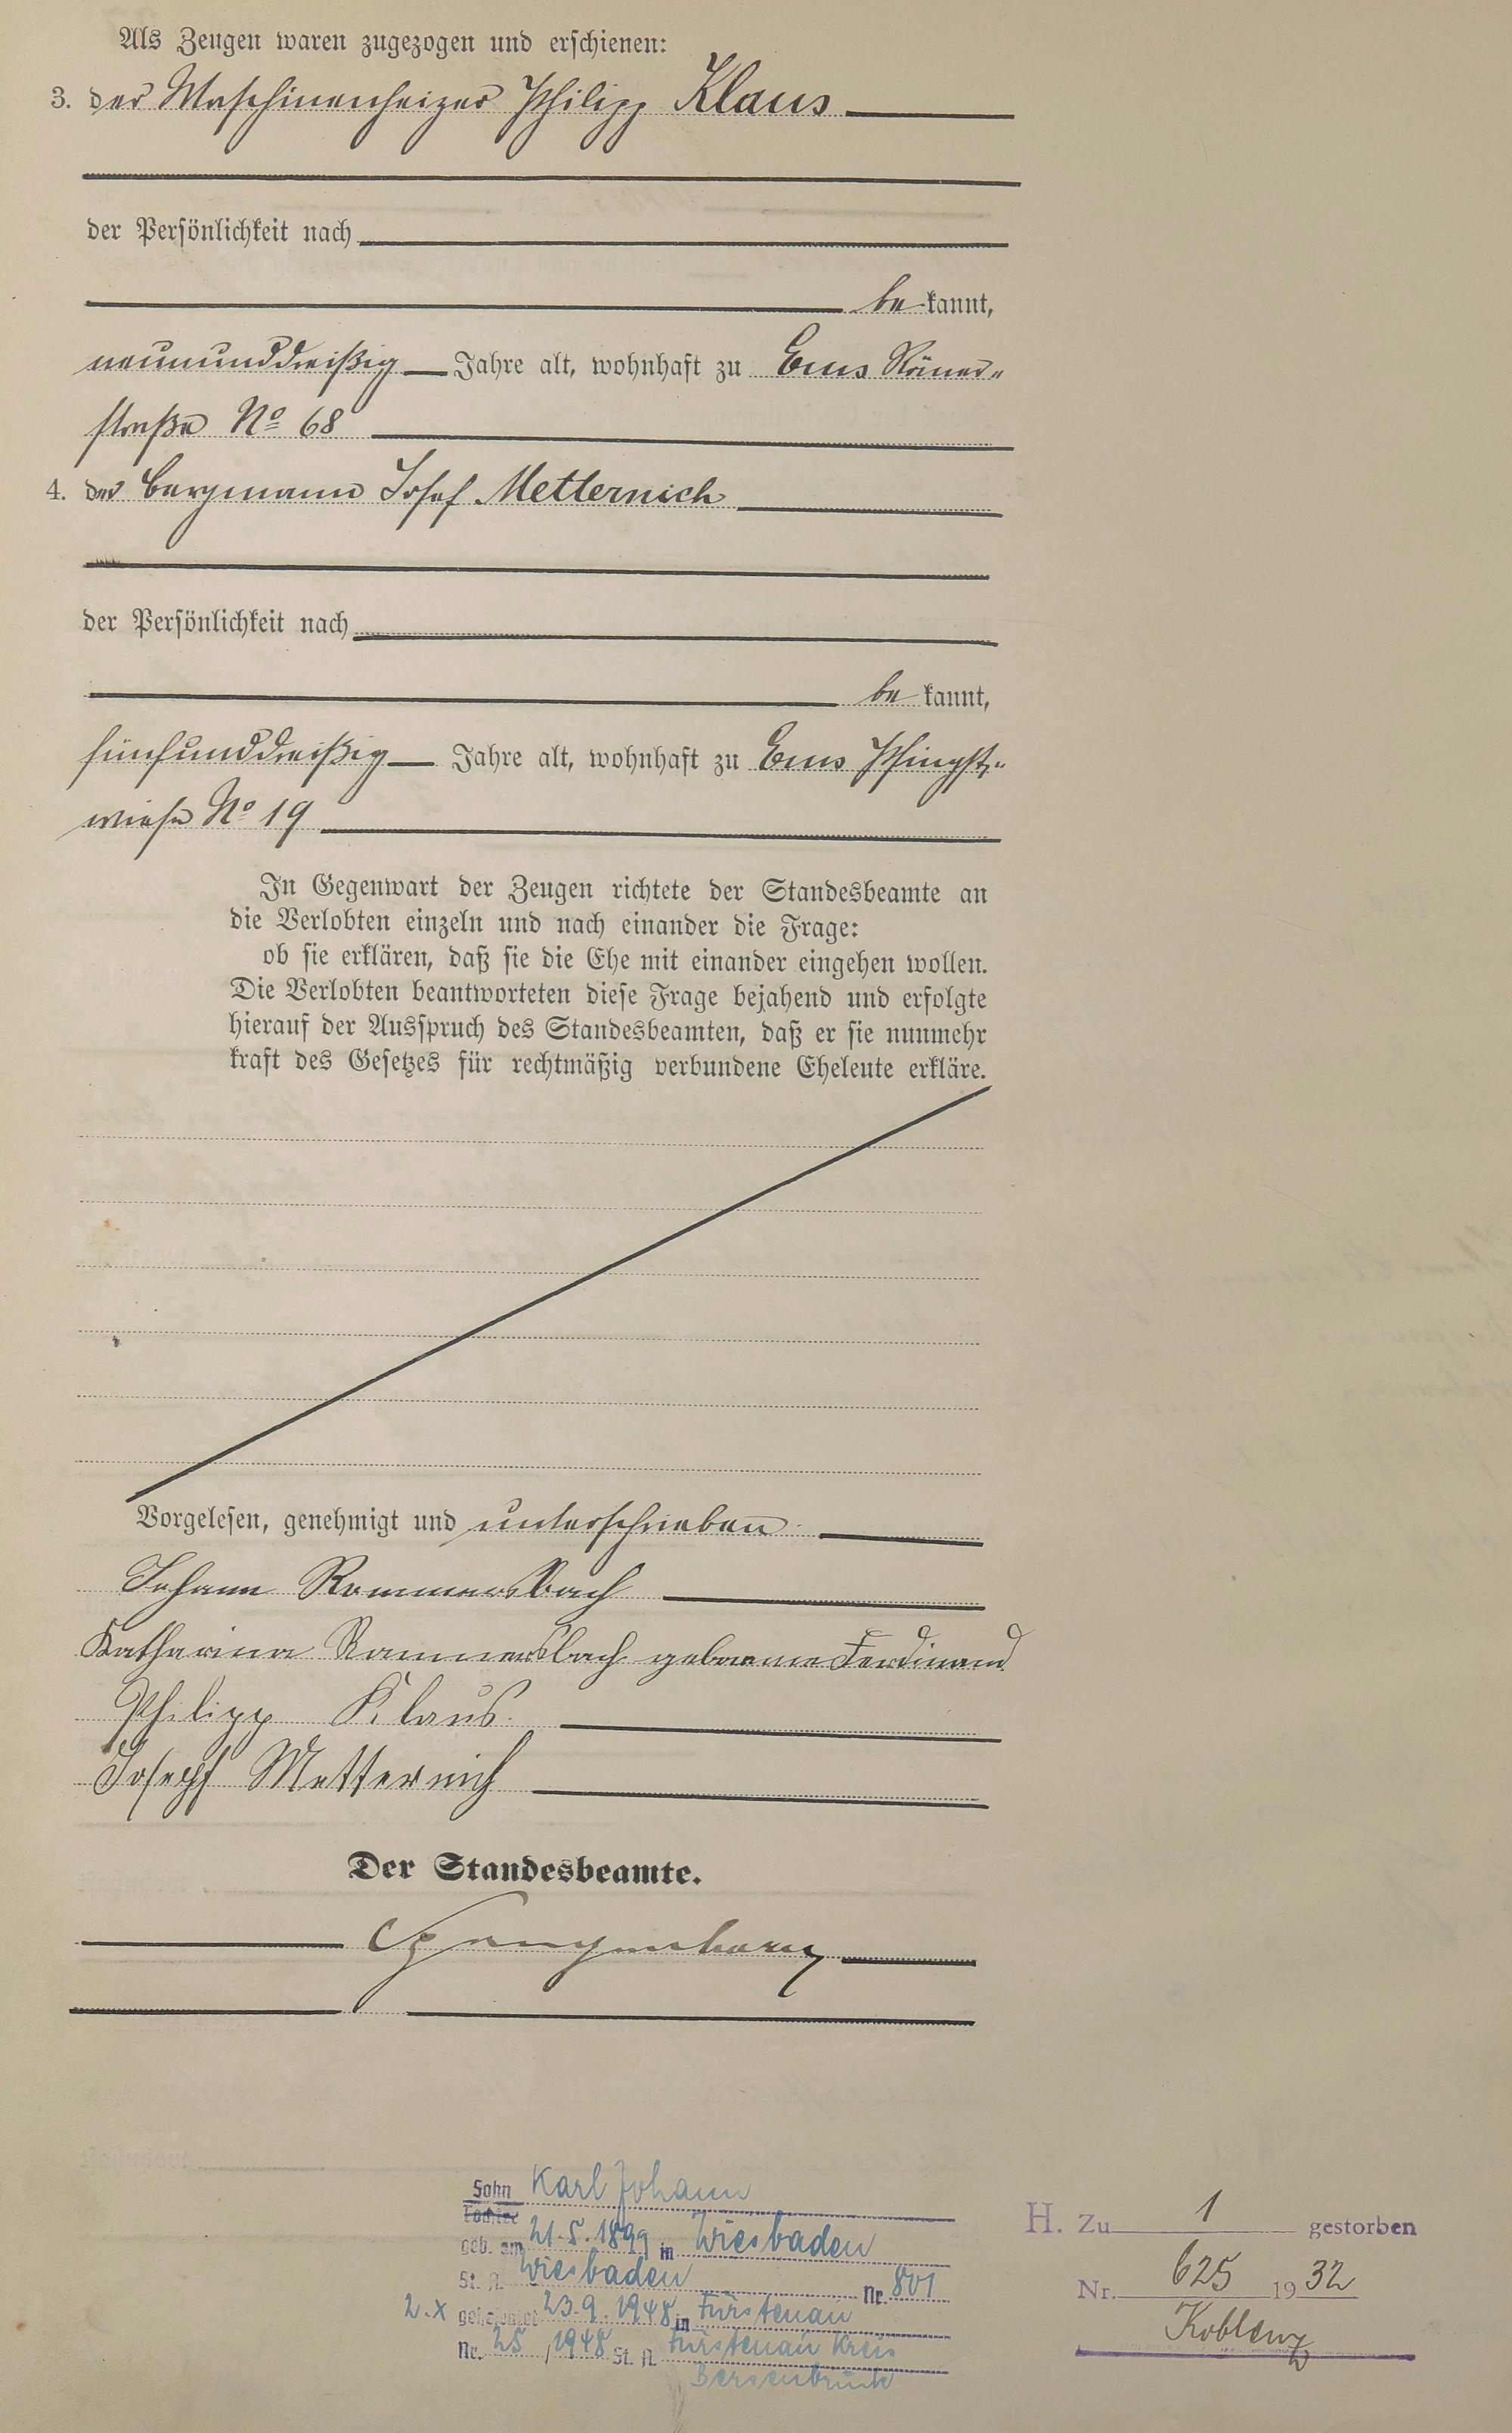 Als Zeugen waren zugezogen und erschienen:
3. der Maschinenheizer Philipp Klaus
der Persönlichkeit nach
be kannt,
neununddreißig Jahre alt, wohnhaft zu Ems Römer-
straße No 68
4. der Bergmann Josef Metternich
der Persönlichkeit nach
be kannt,
fünfunddreißig Jahre alt, wohnhaft zu Ems Pfingst-
wiese No 19
In Gegenwart der Zeugen richtete der Standesbeamte an
die Verlobten einzeln und nach einander die Frage:
ob sie erklären, daß sie die Ehe mit einander eingehen wollen.
Die Verlobten beantworteten diese Frage bejahend und erfolgte
hierauf der Ausspruch des Standesbeamten, daß er sie nunmehr
kraft des Gesetzes für rechtmäßig verbundene Eheleute erkläre.
Vorgelesen, genehmigt und unterschrieben
Johann Rommersbach
Katharina Rommersbach geborene Ferdinand
Philipp Klaus.
Joseph Metternich
Der Standesbeamte.
Sohn Karl Johann
Tochter
geb. am 21.5.1899 in Wiesbaden
St. A. Wiesbaden Nr. 801
2.x geheiratet 23.9.1948 in Fürstenau
Nr. 25/1948 St. A. Fürstenau Kreis
Bersenbrück
H. Zu 1 gestorben
Nr. 625 1932
Koblenz